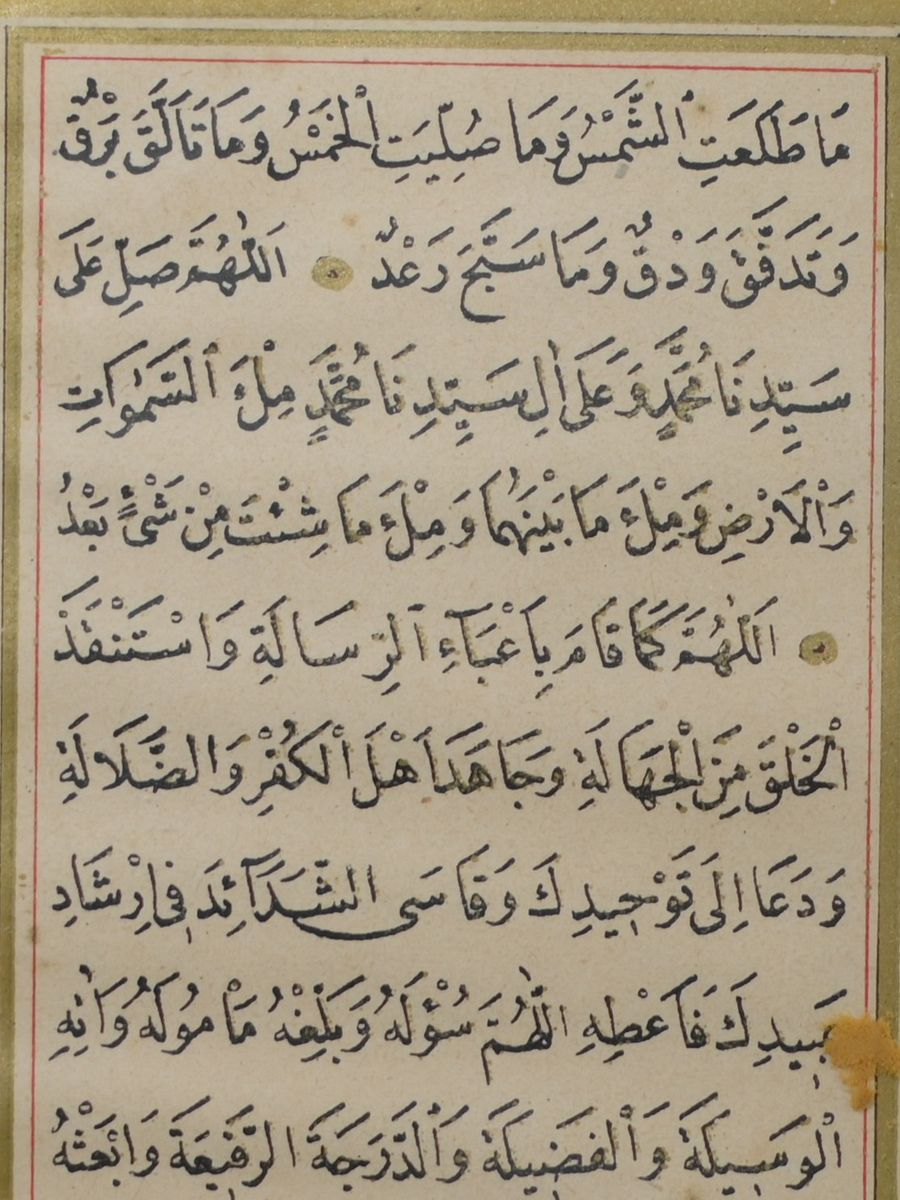 مَا طَلَعَتِ ٱلشَّمْسُ وَمَا صُلِّيَتِ ٱلْخَمْسُ وَمَا تَاَلَّقَ بَرْقٌ
وَتَدَفَّقَ وَدْقٌ وَمَا سَبَّحَ رَعْدٌ ۝ اَللّٰهُمَّ صَلِّ عَلَى
سَيِّدِنَا مُحَمَّدٍ وَعَلَى اٰلِ سَيِّدِنَا مُحَمَّدٍ مِلْءَ ٱلسَّمٰوَاتِ
وَٱلْاَرْضِ وَمِلْءَ مَا بَيْنَهُمَا وَمِلْءَ مَا شِئْتَ مِنْ شَىْءٍ بَعْدُ
۝ اَللّٰهُمَّ كَمَا قَامَ بِاَعْبَآءِ ٱلرِّسَالَةِ وَاسْتَنْقَذَ
ٱلْخَلْقَ مِنَ ٱلْجَهَالَةِ وَجَاهَدَ اَهْلَ ٱلْكُفْرِ وَالضَّلَالَةِ
وَدَعَا اِلَى تَوْحِيدِكَ وَقَاسَى الشَّدَآئِدَ فِى اِرْشَادِ
عَبِيدِكَ فَاَعْطِهِ اللّٰهُمَّ سُؤْلَهُ وَبَلِّغْهُ مَاْمُولَهُ وَاٰتِهِ
ٱلْوَسِيلَةَ وَٱلْفَضِيلَةَ وَٱلدَّرَجَةَ الرَّفِيعَةَ وَابْعَثْهُ